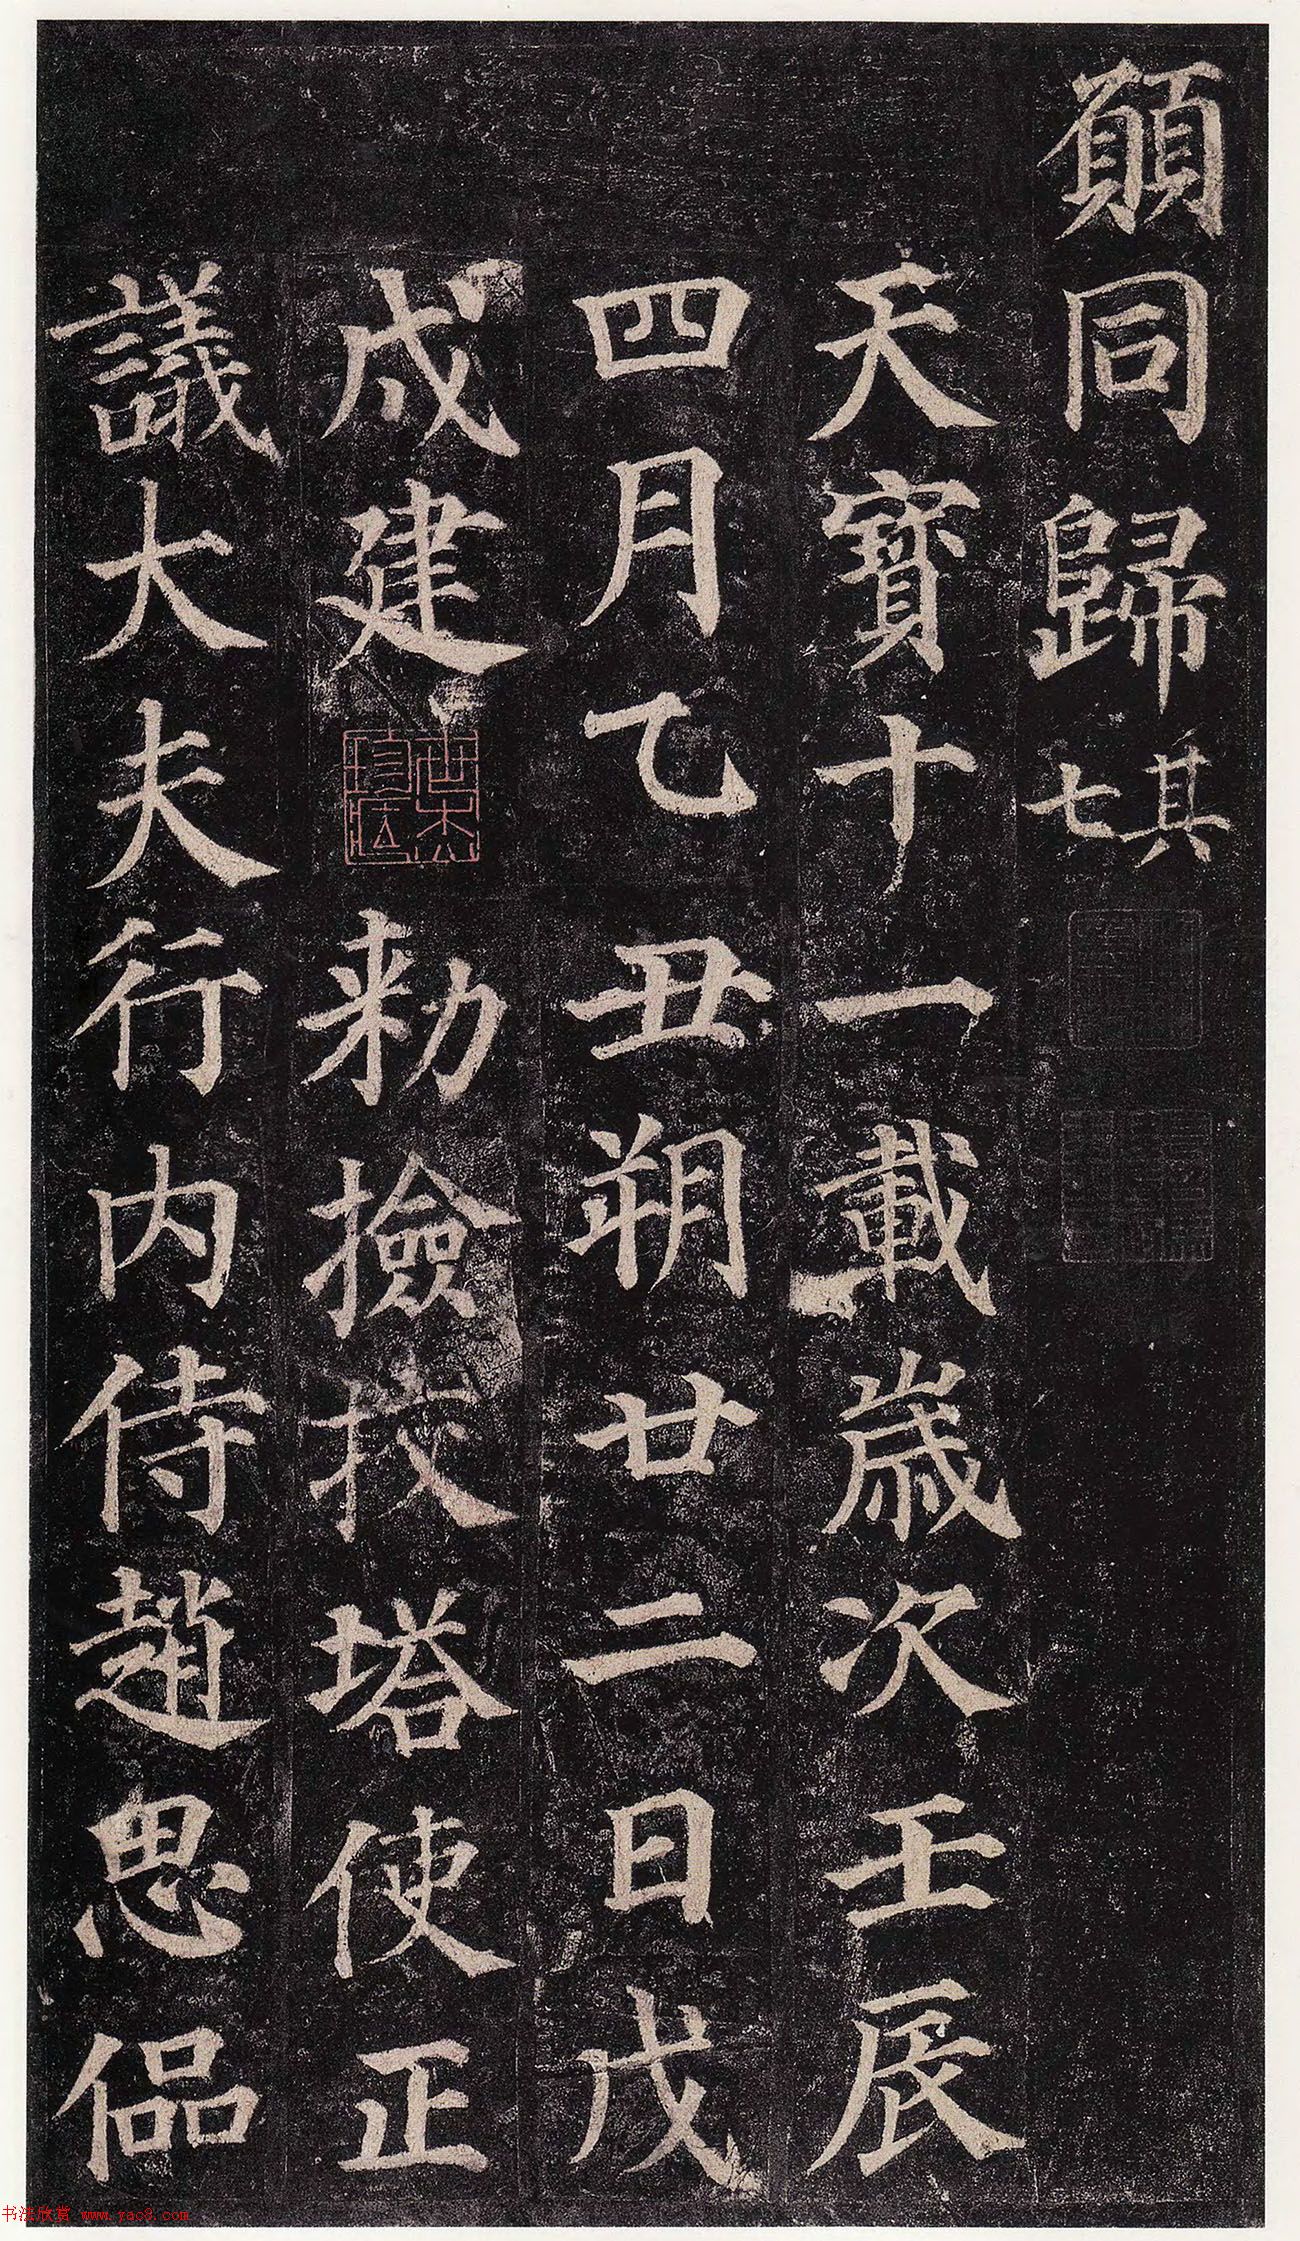 願同歸其七
天寶十一載歲次壬辰
四月乙丑朔廿二日戊
戌建勑撿挍塔使正
議大夫行内侍趙思偘
书法欣赏 www.yac8.com